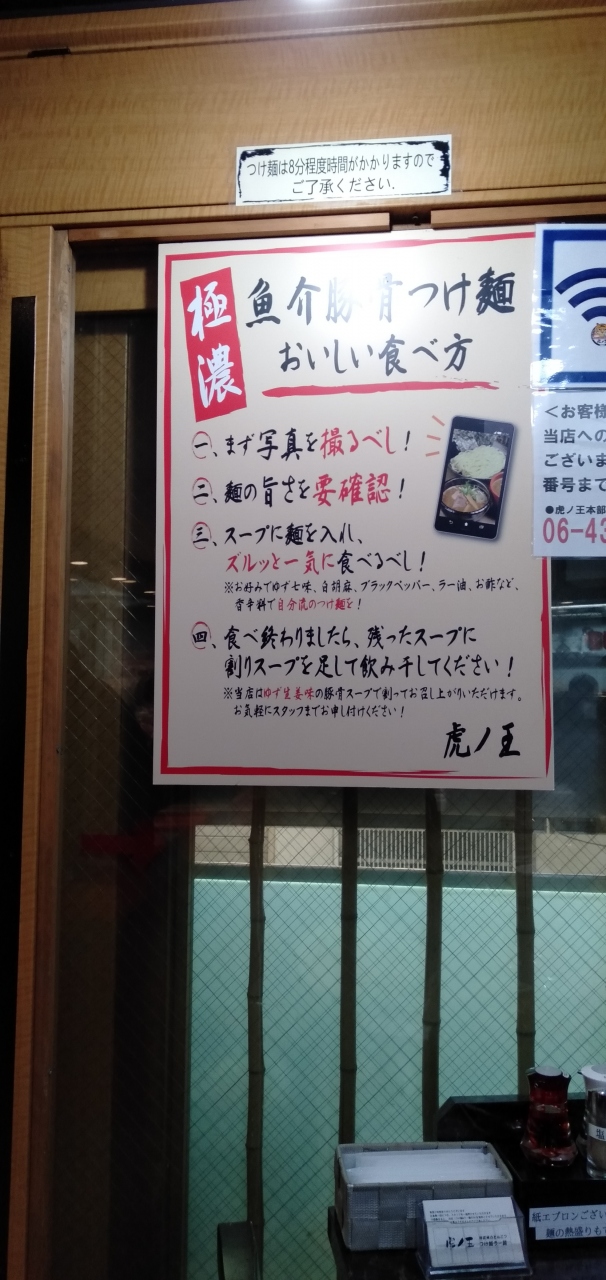 つけ麺は8分程度時間がかかりますので
ご了承ください.
極濃
魚介豚骨つけ麺
おいしい食べ方
一、まず写真を撮るべし!
二、麺の旨さを要確認!
三、スープに麺を入れ、
ズルッと一気に食べるべし!
※お好みでゆず七味、白胡麻、ブラックペッパー、ラー油、お酢など、
香辛料で自分流のつけ麺を!
四、食べ終わりましたら、残ったスープに
割りスープを足して飲み干してください!
※当店はゆず生姜味の豚骨スープで割ってお召し上がりいただけます。
お気軽にスタッフまでお申し付けください!
虎ノ王
<お客様
当店への
ございま
番号まで
●虎ノ王本部
06-43
塩
紙エプロンござい
麺の熱盛りも
虎ノ王